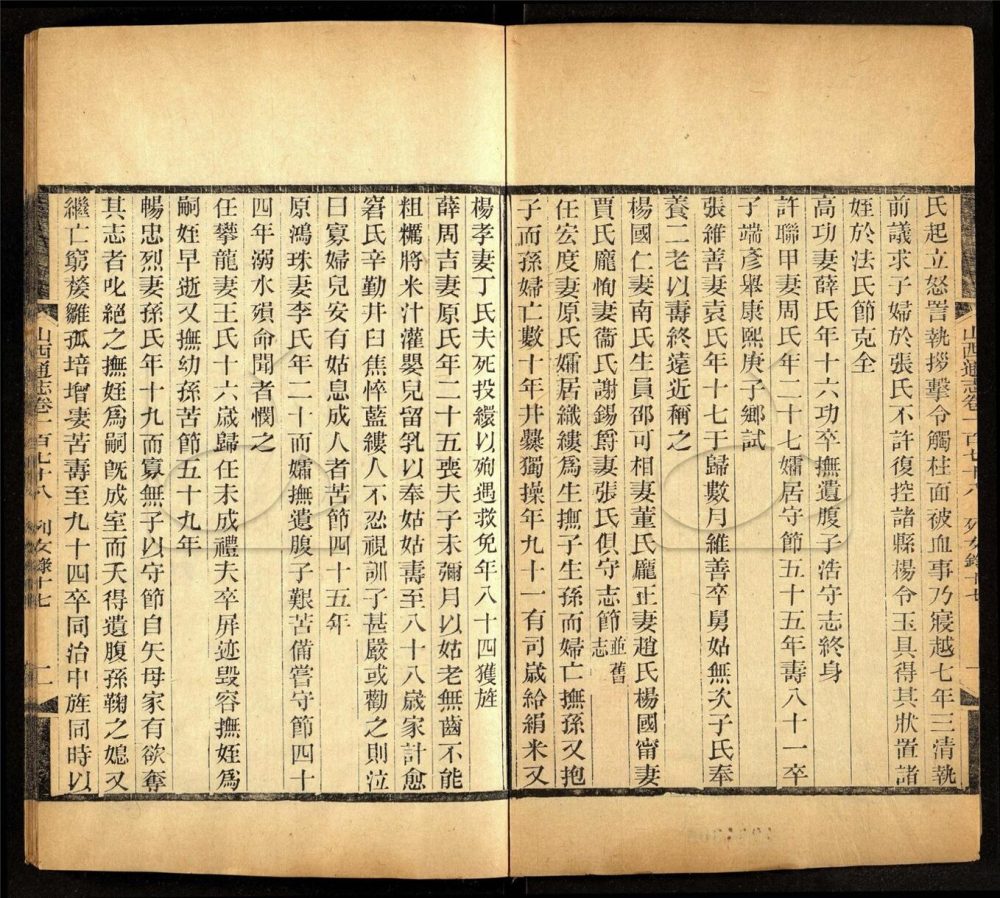 氏起立怒詈執拶擊令觸柱面被血事乃寢越七年三清執
前議求子婦於張氏不許復控諸縣楊令玉具得其狀置諸
姪於法氏節克全
高功妻薛氏年十六功卒撫遺腹子浩守志終身
許聯甲妻周氏年二十七孀居守節五十五年壽八十一卒
子端彥舉康熙庚子鄉試
張維善妻袁氏年十七于歸數月維善卒舅姑無次子氏奉
養二老以壽終遠近稱之
楊國仁妻南氏生員邵可相妻董氏龐正妻趙氏楊國甯妻
賈氏龐恂妻衞氏謝錫爵妻張氏俱守志節並舊志
任宏度妻原氏孀居織縷為生撫子生孫而婦亡撫孫又抱
子而孫婦亡數十年井爨獨操年九十一有司歲給絹米又
山西通志卷一百七十八 列女錄十七
楊孝妻丁氏夫死投繯以殉遇救免年八十四獲旌
薛周吉妻原氏年二十五喪夫子未彌月以姑老無齒不能
粗糲將米汁灌嬰兒留乳以奉姑姑壽至八十八歲家計愈
窘氏辛勤井臼焦悴藍縷人不忍視訓子甚嚴或勸之則泣
曰寡婦兒安有姑息成人者苦節四十五年
原鴻珠妻李氏年二十而孀撫遺腹子艱苦備嘗守節四十
四年溺水殞命聞者憫之
任攀龍妻王氏十六歲歸任未成禮夫卒屏迹毀容撫姪為
嗣姪早逝又撫幼孫苦節五十九年
暢忠烈妻孫氏年十九而寡無子以守節自矢母家有欲奪
其志者叱絕之撫姪為嗣旣成室而夭得遺腹孫鞠之媳又
繼亡窮嫠雛孤培增淒苦壽至九十四卒同治中旌同時以
山西通志卷一百七十八 列女錄十七 二